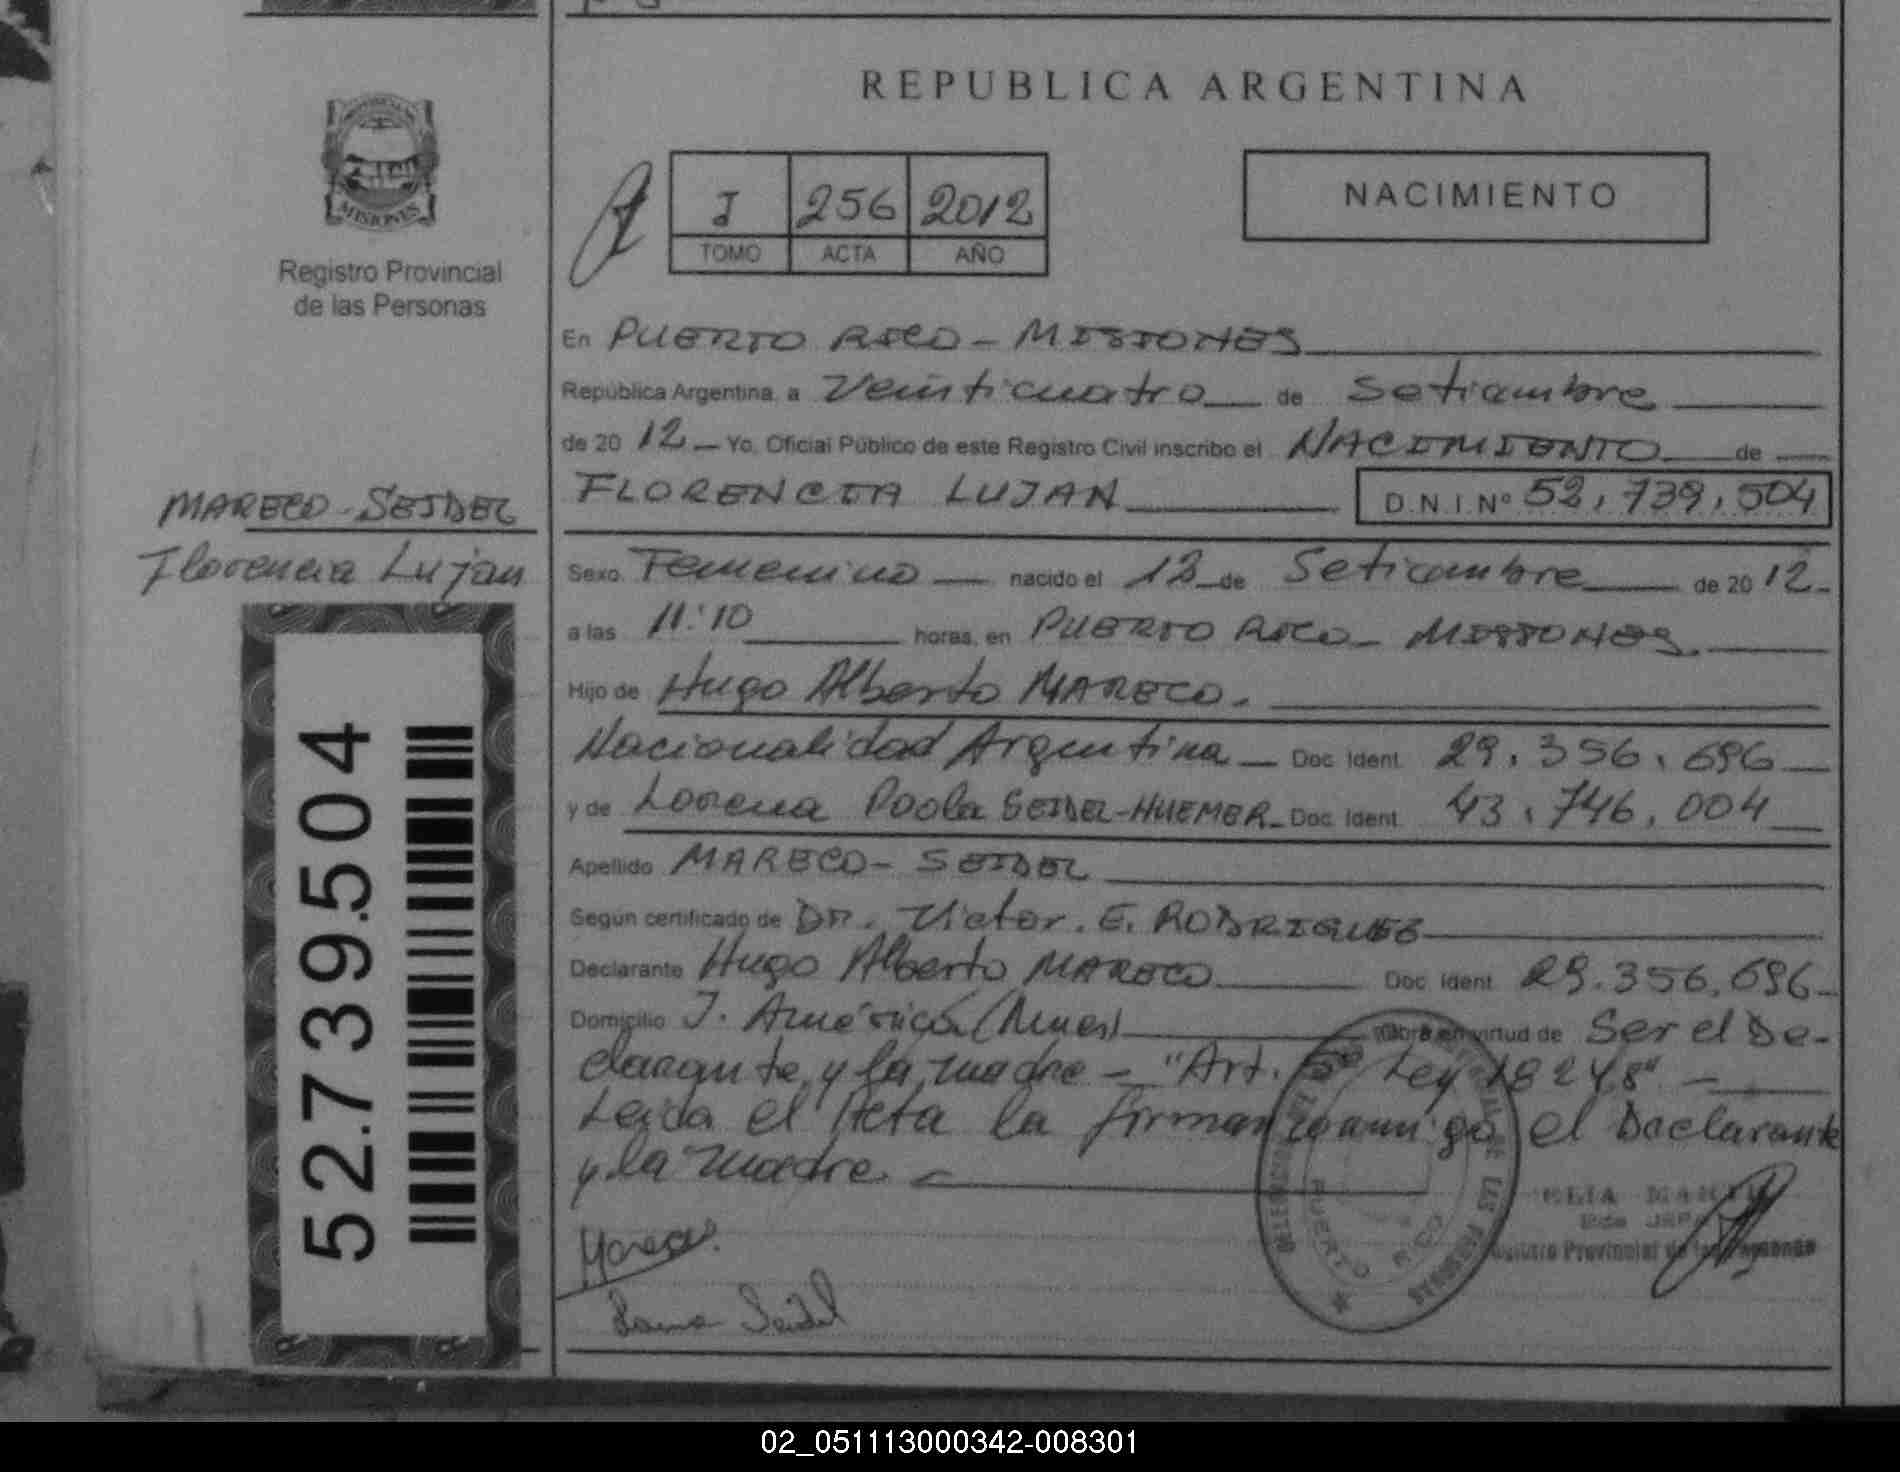 REPUBLICA ARGENTINA
MISIONES
Registro Provincial
de las Personas
I 256 2012
TOMO ACTA AÑO
NACIMIENTO
En PUERTO RICO - MISIONES
República Argentina, a Veinticuatro de Setiembre
de 20 12 - Yo, Oficial Público de este Registro Civil inscribo el NACIMIENTO de
FLORENCIA LUJAN D.N.I. Nº 52.739.504
MARECO - SEIDEL
Florencia Lujan
Sexo Femenino nacido el 12 de Setiembre de 20 12
a las 11:10 horas, en PUERTO RICO - MISIONES.
Hijo de Hugo Alberto MARECO.
Nacionalidad Argentina Doc. Ident. 29.356.696
y de Lorena Paola SEIDEL-HUEMER Doc. Ident. 43.746.004
Apellido MARECO - SEIDEL
Según certificado de DR. Victor. E. RODRIGUES
Declarante Hugo Alberto MARECO Doc. Ident. 29.356.696
Domicilio J. América (Mnes) Obra en virtud de Ser el De-
clarante y la madre - "Art. 5º Ley 18248" -
Leida el Acta la firman conmigo el Declarante
y la madre
Mareco
Seidel
PUERTO RICO
LAS PERSONAS
Registro Provincial de las Personas
52.739.504
02_051113000342-008301